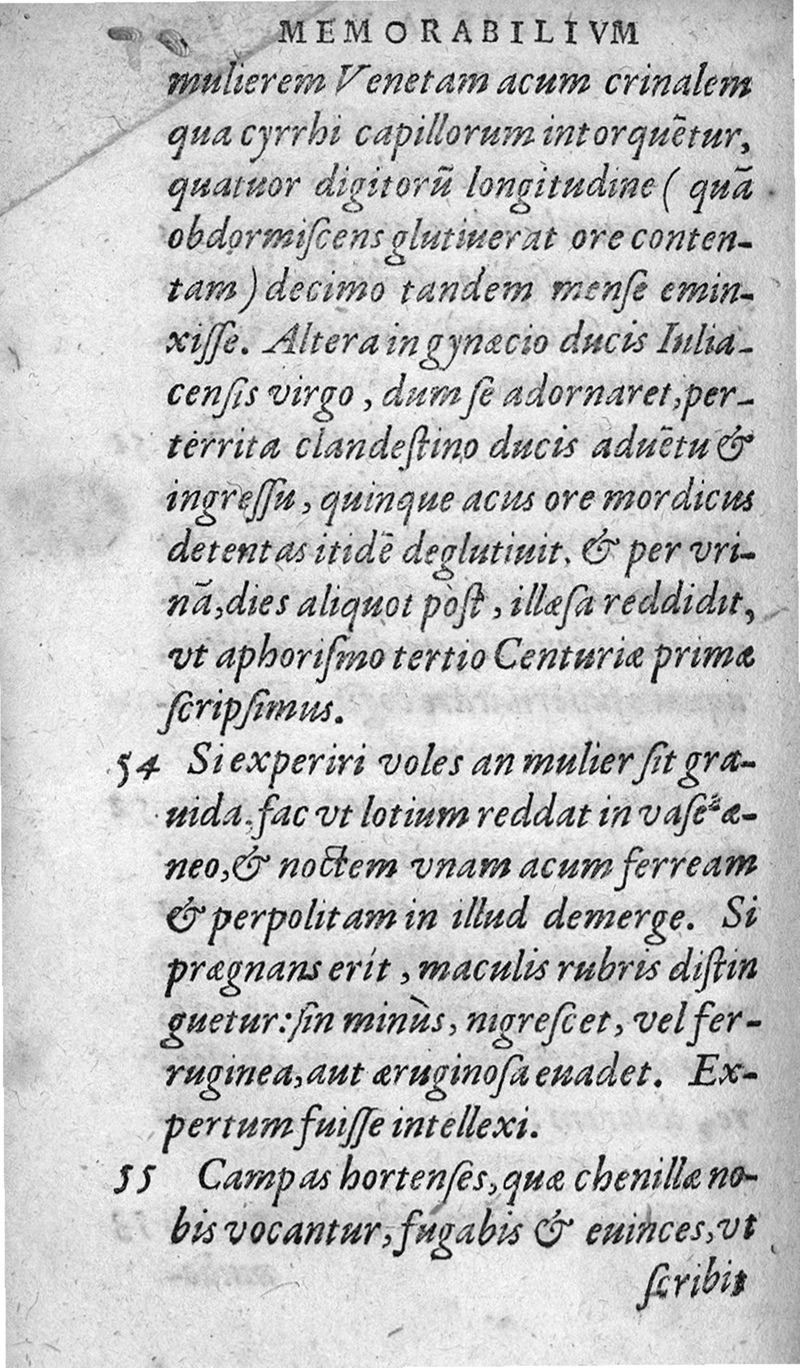 MEMORABILIVM
mulierem Venetam acum crinalem
qua cyrrhi capillorum intorquẽtur,
quatuor digitorũ longitudine ( quã
obdormiſcens glutiuerat ore conten-
tam ) decimo tandem menſe emin-
xiſſe. Altera in gynæcio ducis Iulia-
cenſis virgo, dum ſe adornaret, per-
territa clandeſtino ducis aduẽtu &
ingreſſu, quinque acus ore mordicus
detentas itidẽ deglutiuit, & per vri-
nã, dies aliquot pòſt, illæſa reddidit,
vt aphoriſmo tertio Centuriæ primæ
ſcripſimus.
54 Si experiri voles an mulier ſit gra-
uida, fac vt lotium reddat in vaſe æ-
neo, & noctem vnam acum ferream
& perpolitam in illud demerge. Si
prægnans erit, maculis rubris diſtin
guetur: ſin minùs, nigreſcet, vel fer-
ruginea, aut æruginoſa euadet. Ex-
pertum fuiſſe intellexi.
55 Campas hortenſes, quæ chenillæ no-
bis vocantur, fugabis & euinces, vt
ſcribit